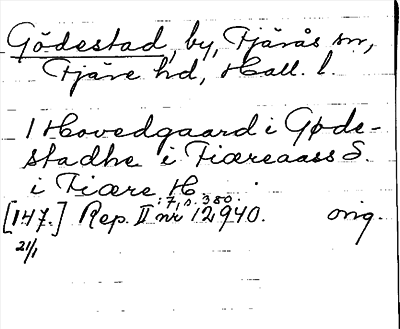 Gödestad, by, Fjärås sn,
Fjäre hd, Hall. l.
1 Hovedgaard i Gøde-
stadhe i Fiæreaass S.
i Fiære H.
[147.] Rep. II :7, s. 380. nr 12940. orig.
21/1